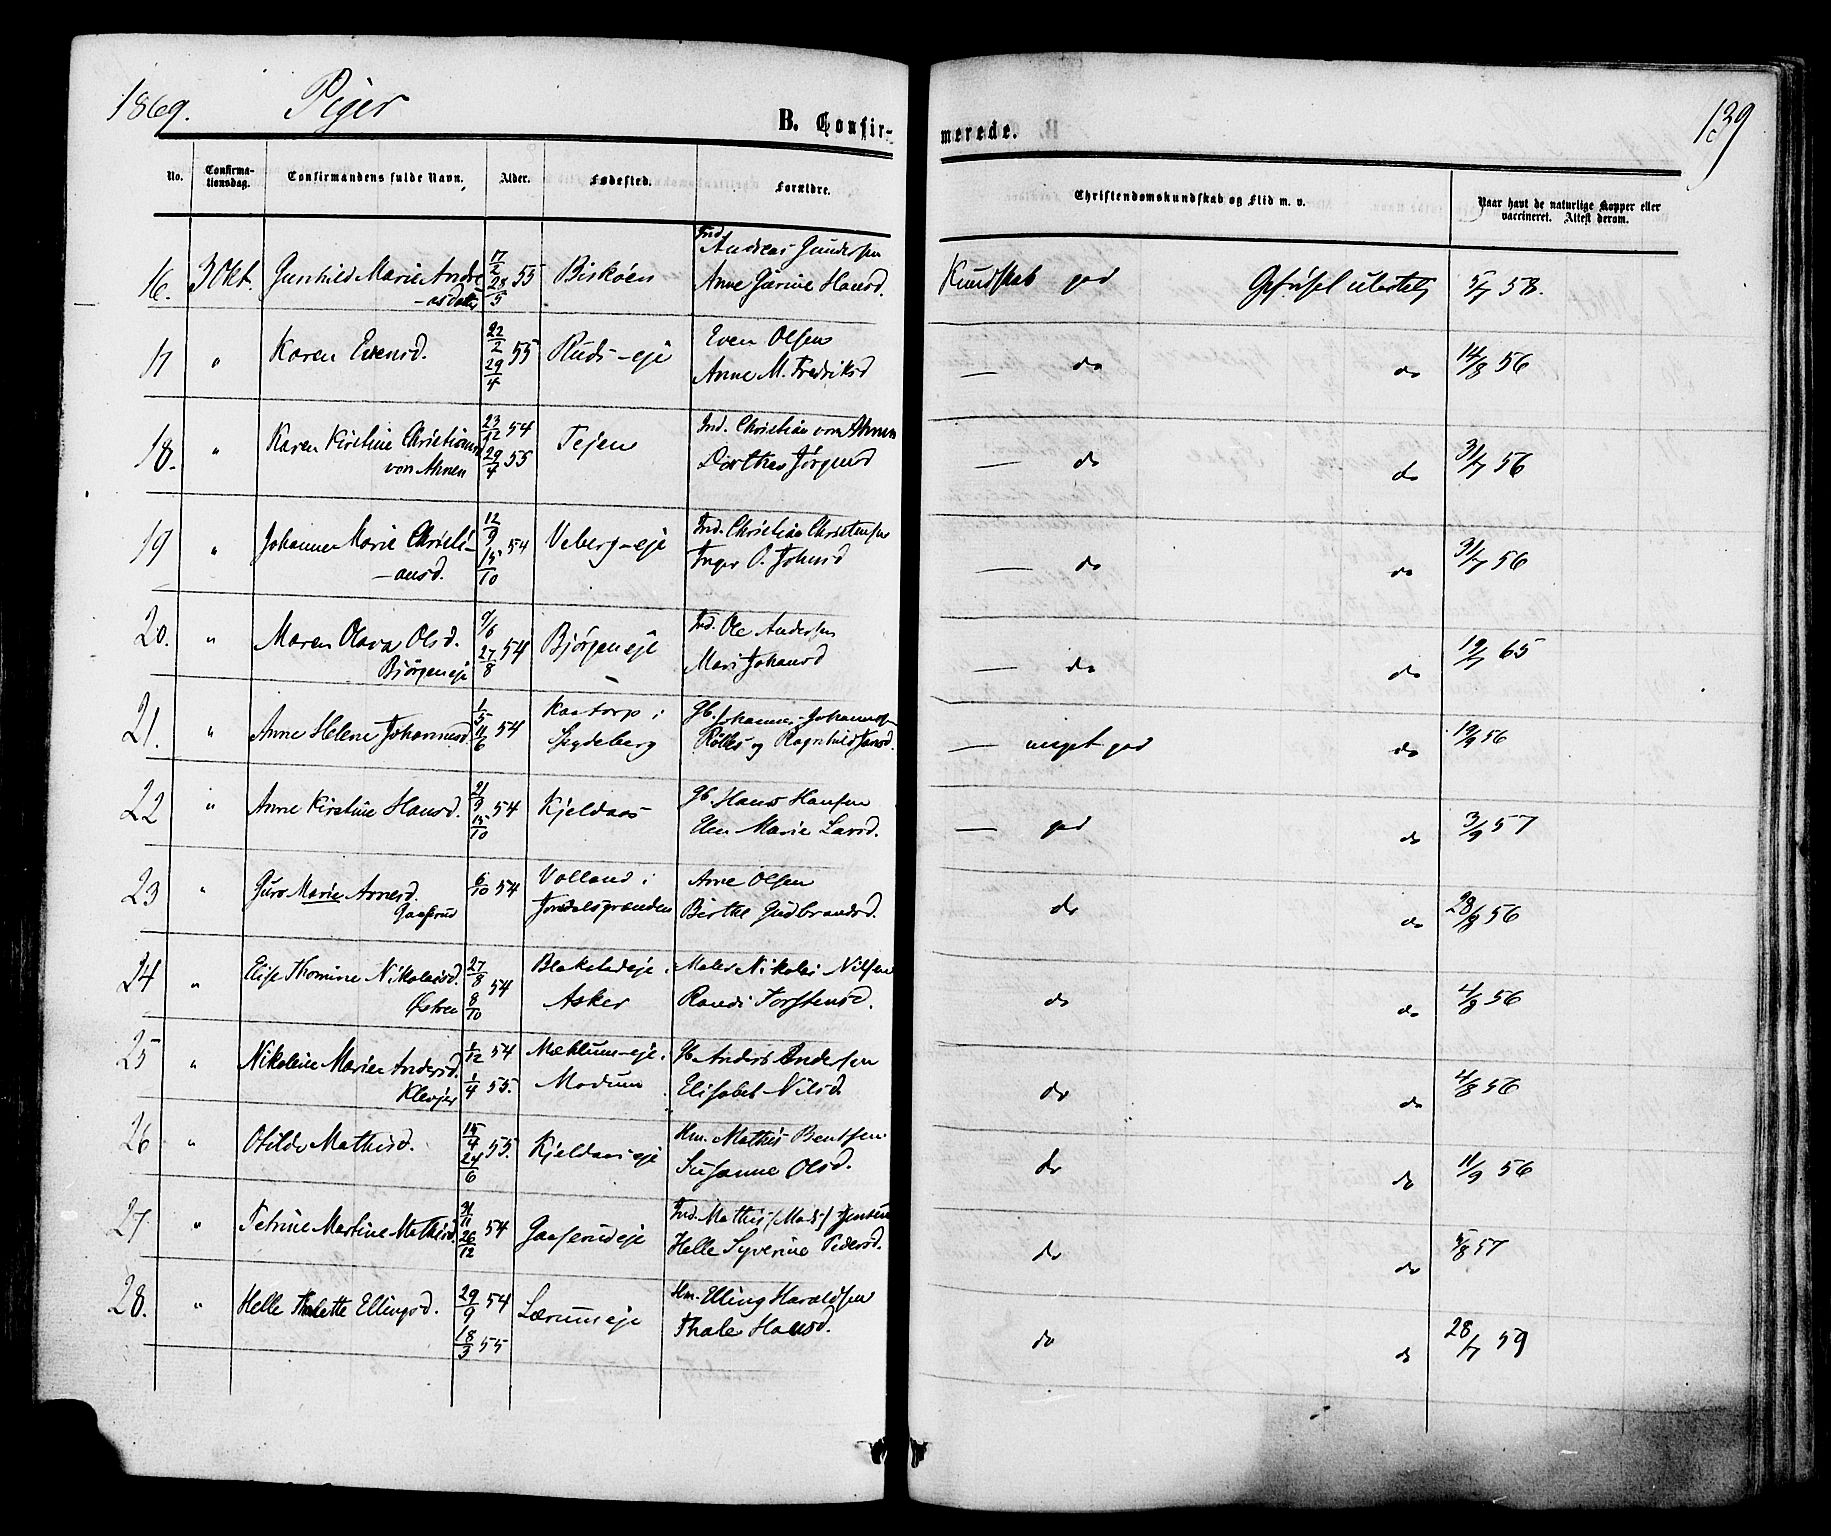 1869. Piger B. Confir- merede. 139
No. Confirma-tionsdag. Confirmandens fulde Navn. Alder. Fødested. Forældre. Christendomskundskab og Flid m. v. Naar havt de naturlige Kopper eller vaccineret. Attest derom.
Ind. Andreas Gundersen
16. 3 Okt. Gunhild Marie Andre 17/2 28/5 55 Biskøen Anne Garine Hansd. Kundskab god Opførsel ulastelig 5/7 58.
-asdatter
Even Olsen
17 " Karen Evensd. 22/2 29/4 55 Ruds-eje Anne M. Fredriksd — do do 14/8 56
18. " Karen Kirstine Christiansd 23/12 54 Tejen Ind. Christian von Ahnen — do do 31/7 56
von Ahnen 29/4 55 Dorthea Jørgensd
19 " Johanne Marie Christi- 12/9 15/10 54 Veberg-eje Ind. Christian Christensen — do do 31/7 56
-ansd. Inger O. Johnsd
20. " Maren Olava Olsd. 9/6 27/8 54 Bjørgeneje Ind. Ole Andersen — do do 19/7 65
Bjørgeneje Mari Johansd
21. " Anne Helene Johannesd. 1/5 11/6 54 Kaatorp i Gb. Johannes Johannesen — meget god do 19/9 56
Spydeberg Rølles og Ragnhild Hansd.
22 " Anne Kirstine Hansd. 21/9 15/10 54 Kjeldaas Gb. Hans Hansen — god do 3/9 57
Elen Marie Larsd.
23 " Guro Marie Arnesd. 6/10 54 Volland i Arne Olsen do do 28/8 56
Gaaserud Jondalsgrænden Birthe Gudbrandsd.
24 " Elise Thomine Nikolaisd. 27/8 8/10 54 Blakstadeje i Maler Nikolai Nilsen do do 4/8 56
Østren Asker Randi Torstensd.
25 " Nikoline Marie Andersd. 1/12 54 Mæhlum-eje i Gb. Anders Andersen do do 4/8 56
Klevjer 1/4 55. Modum Elisabet Nilsd.
26 " Otilde Mathisd. 15/4 24/6 55. Kjeldaaseje Hm. Mathis Bentsen do do 11/9 56
Susanne Olsd.
27. " Petrine Martine Mathisd. 21/11 26/12 54 Gaaserudeje Ind. Mathis (Mads) Jensen do do 5/8 57
Helle Syverine Pedersd.
28. " Helle Thalette Ellingsd. 29/9 54 Lærumseje Hm. Elling Haraldsen do do 28/7 59
18/3 55 Thale Hansd.